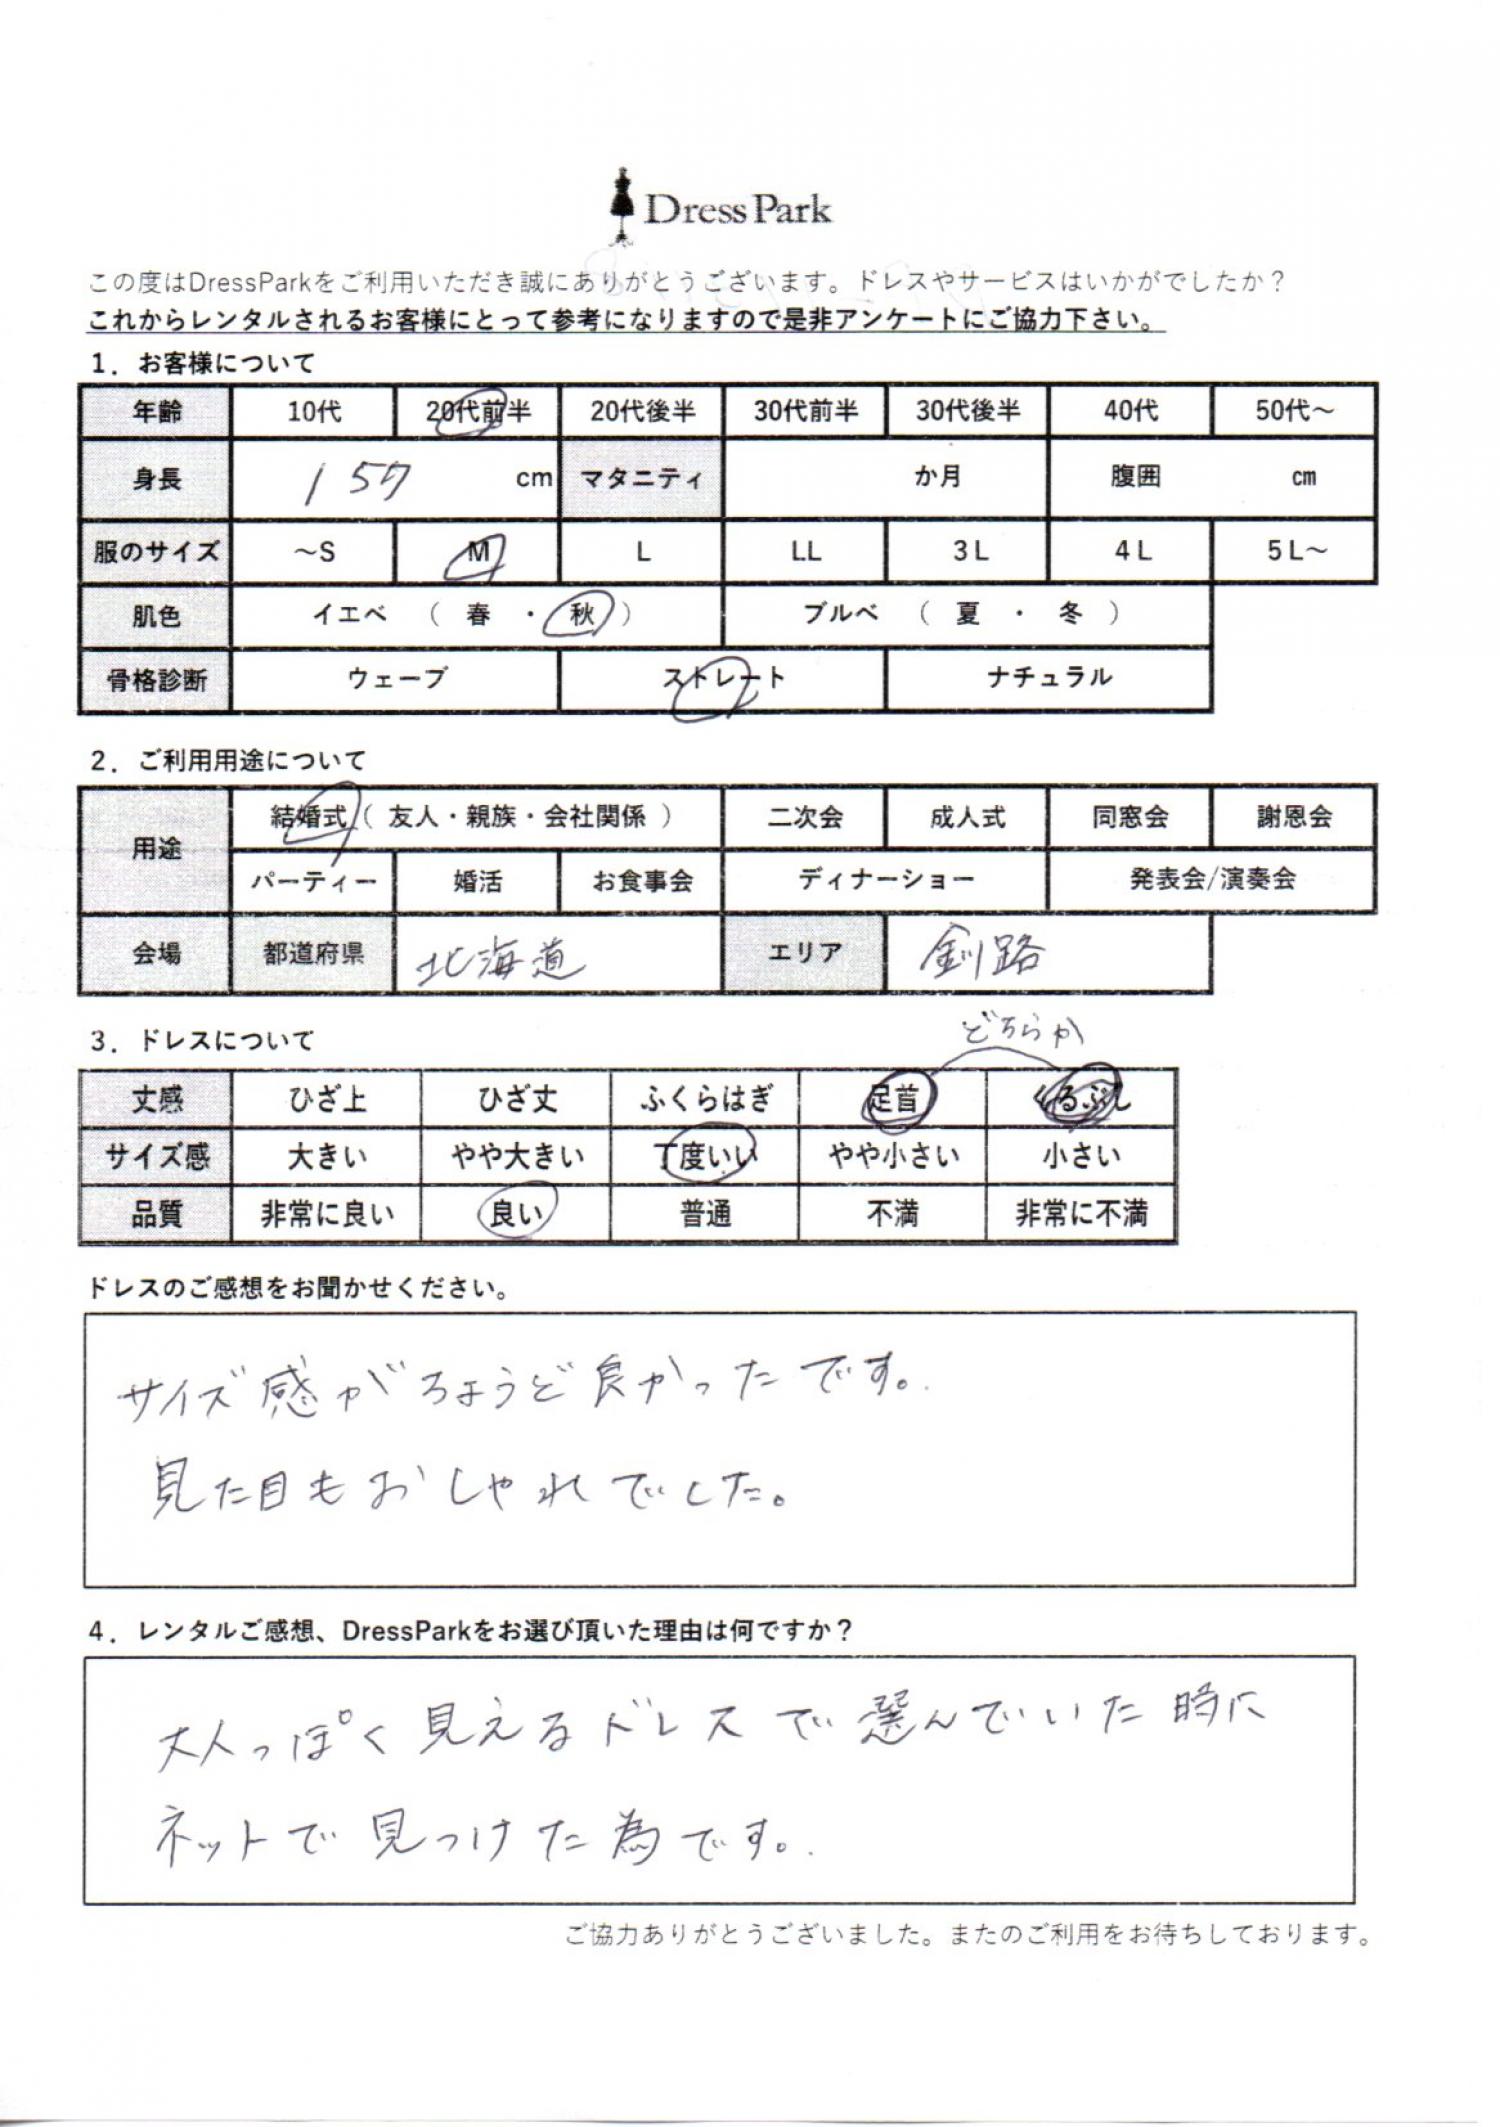 Dress Park
この度はDressParkをご利用いただき誠にありがとうございます。ドレスやサービスはいかがでしたか？
これからレンタルされるお客様にとって参考になりますので是非アンケートにご協力下さい。
1．お客様について
年齢 10代 20代前半 20代後半 30代前半 30代後半 40代 50代～
身長 157 cm マタニティ か月 腹囲 cm
服のサイズ ～S M L LL 3L 4L 5L～
肌色 イエベ （ 春 ・ 秋 ） ブルベ （ 夏 ・ 冬 ）
骨格診断 ウェーブ ストレート ナチュラル
2．ご利用用途について
用途 結婚式（ 友人・親族・会社関係 ） 二次会 成人式 同窓会 謝恩会
パーティー 婚活 お食事会 ディナーショー 発表会/演奏会
会場 都道府県 北海道 エリア 釧路
3．ドレスについて
どちらか
丈感 ひざ上 ひざ丈 ふくらはぎ 足首 くるぶし
サイズ感 大きい やや大きい 丁度いい やや小さい 小さい
品質 非常に良い 良い 普通 不満 非常に不満
ドレスのご感想をお聞かせください。
サイズ感がちょうど良かったです。
見た目もおしゃれでした。
4．レンタルご感想、DressParkをお選び頂いた理由は何ですか？
大人っぽく見えるドレスで選んでいた時に
ネットで見つけた為です。
ご協力ありがとうございました。またのご利用をお待ちしております。